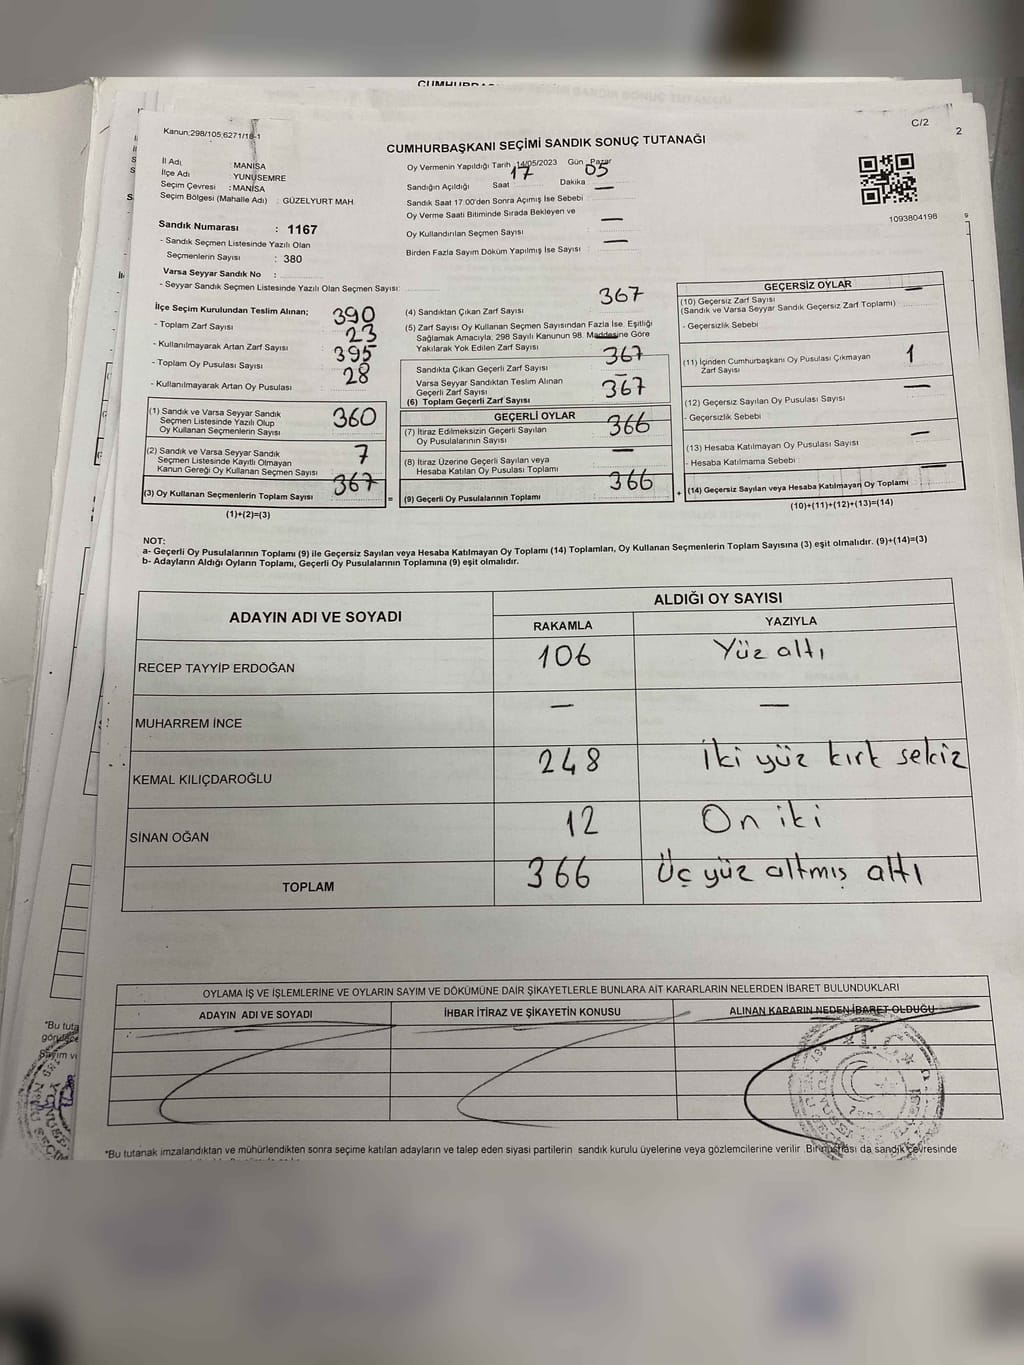 CUMHURBA
Kanun;298/105;6271/18-1
C/2
2
CUMHURBAŞKANI SEÇİMİ SANDIK SONUÇ TUTANAĞI
İl Adı : MANİSA
İlçe Adı : YUNUSEMRE
Seçim Çevresi : MANİSA
Seçim Bölgesi (Mahalle Adı) : GÜZELYURT MAH.
Oy Vermenin Yapıldığı Tarih :14/05/2023 Gün : Pazar
Sandığın Açıldığı Saat 17 Dakika 05
Sandık Saat 17:00'den Sonra Açımış İse Sebebi : —
Oy Verme Saati Bitiminde Sırada Bekleyen ve
Oy Kullandırılan Seçmen Sayısı : —
Birden Fazla Sayım Döküm Yapılmış İse Sayısı : —
1093804198
Sandık Numarası : 1167
- Sandık Seçmen Listesinde Yazılı Olan
Seçmenlerin Sayısı : 380
Varsa Seyyar Sandık No :
- Seyyar Sandık Seçmen Listesinde Yazılı Olan Seçmen Sayısı:
İlçe Seçim Kurulundan Teslim Alınan;
- Toplam Zarf Sayısı 390
- Kullanılmayarak Artan Zarf Sayısı 23
- Toplam Oy Pusulası Sayısı 395
- Kullanılmayarak Artan Oy Pusulası 28
(1) Sandık ve Varsa Seyyar Sandık
Seçmen Listesinde Yazılı Olup
Oy Kullanan Seçmenlerin Sayısı 360
(2) Sandık ve Varsa Seyyar Sandık
Seçmen Listesinde Kayıtlı Olmayan
Kanun Gereği Oy Kullanan Seçmen Sayısı 7
(3) Oy Kullanan Seçmenlerin Toplam Sayısı 367
(1)+(2)=(3)
=
(4) Sandıktan Çıkan Zarf Sayısı 367
(5) Zarf Sayısı Oy Kullanan Seçmen Sayısından Fazla İse, Eşitliği
Sağlamak Amacıyla; 298 Sayılı Kanunun 98. Maddesine Göre
Yakılarak Yok Edilen Zarf Sayısı —
Sandıkta Çıkan Geçerli Zarf Sayısı 367
Varsa Seyyar Sandıktan Teslim Alınan
Geçerli Zarf Sayısı —
(6) Toplam Geçerli Zarf Sayısı 367
GEÇERLİ OYLAR
(7) İtiraz Edilmeksizin Geçerli Sayılan
Oy Pusulalarının Sayısı 366
(8) İtiraz Üzerine Geçerli Sayılan veya
Hesaba Katılan Oy Pusulası Toplamı —
(9) Geçerli Oy Pusulalarının Toplamı 366
+
GEÇERSİZ OYLAR
(10) Geçersiz Zarf Sayısı —
(Sandık ve Varsa Seyyar Sandık Geçersiz Zarf Toplamı)
- Geçersizlik Sebebi
(11) İçinden Cumhurbaşkanı Oy Pusulası Çıkmayan 1
Zarf Sayısı
(12) Geçersiz Sayılan Oy Pusulası Sayısı —
- Geçersizlik Sebebi
(13) Hesaba Katılmayan Oy Pusulası Sayısı —
- Hesaba Katılmama Sebebi
(14) Geçersiz Sayılan veya Hesaba Katılmayan Oy Toplamı —
(10)+(11)+(12)+(13)=(14)
NOT:
a- Geçerli Oy Pusulalarının Toplamı (9) ile Geçersiz Sayılan veya Hesaba Katılmayan Oy Toplamı (14) Toplamları, Oy Kullanan Seçmenlerin Toplam Sayısına (3) eşit olmalıdır. (9)+(14)=(3)
b- Adayların Aldığı Oyların Toplamı, Geçerli Oy Pusulalarının Toplamına (9) eşit olmalıdır.
ADAYIN ADI VE SOYADI
ALDIĞI OY SAYISI
RAKAMLA YAZIYLA
RECEP TAYYİP ERDOĞAN 106 Yüz altı
MUHARREM İNCE — —
KEMAL KILIÇDAROĞLU 248 iki yüz kırk sekiz
SİNAN OĞAN 12 On iki
TOPLAM 366 Üç yüz altmış altı
OYLAMA İŞ VE İŞLEMLERİNE VE OYLARIN SAYIM VE DÖKÜMÜNE DAİR ŞİKAYETLERLE BUNLARA AİT KARARLARIN NELERDEN İBARET BULUNDUKLARI
ADAYIN ADI VE SOYADI İHBAR İTİRAZ VE ŞİKAYETİN KONUSU ALINAN KARARIN NEDEN İBARET OLDUĞU
T.C.
*Bu tuta
Sayım ve
*Bu tutanak imzalandıktan ve mühürlendikten sonra seçime katılan adayların ve talep eden siyasi partilerin sandık kurulu üyelerine veya gözlemcilerine verilir .Bir nüshası da sandık çevresinde